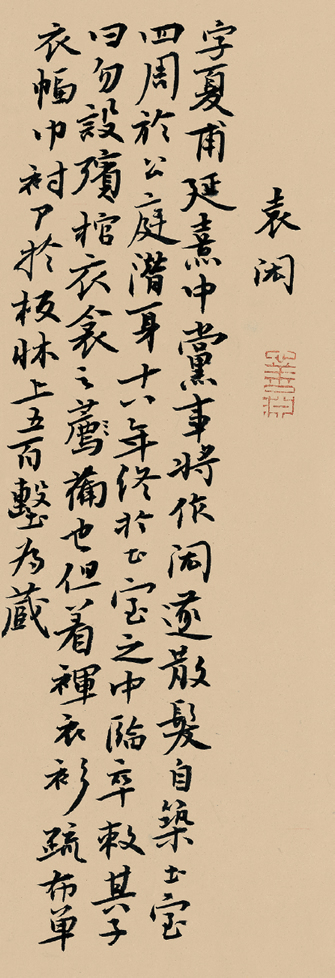 袁閎
字夏甫延熹中黨事將作閎遂散髮自築土室
四周於公庭潛身十八年終於土室之中臨卒敕其子
曰勿設殯棺衣衾之薦備也但着褌衣衫疏布單
衣幅巾衬尸於板牀上五百墼為藏